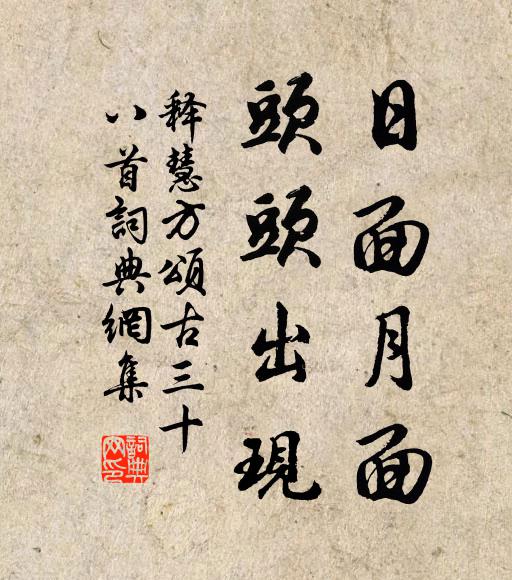 日面月面
頭頭出現
释慧方頌古三十
八首詞典網集
詞典網印